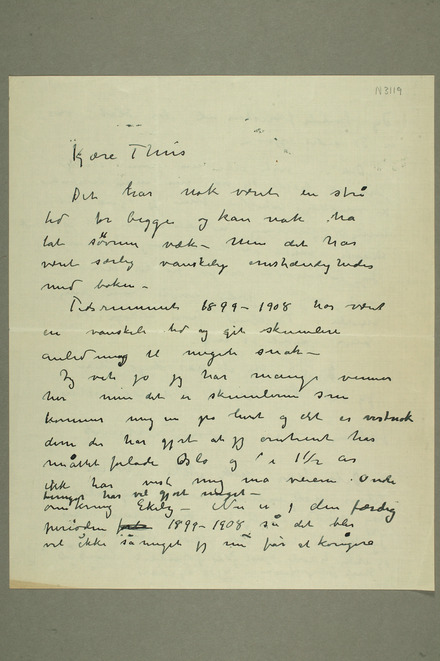 N 3119
Kjære Thiis
Det har nok været en strå
tid for begge og kan nok ha
tat søvnen væk – men det har
været særlig vanskelig omstændigheder
med boken –
Tidsrummet 1899–1908 har været
en vanskelig tid og git skumlere
anledning til meget snak –
Jeg vet jo jeg har mange venner
her men det er skumlerne som
kommer mig en på livet og det er vistnok
dem der har gjort at jeg omtrent har
måttet forlade Oslo og i 1½ år
ikke har vist mig må være. Onde
tunger har vel gjort meget –
omkring Ekely – Nu er I den færdig
perioden 1899–1908 så det blir
vel ikke så meget jeg nu får at korigere